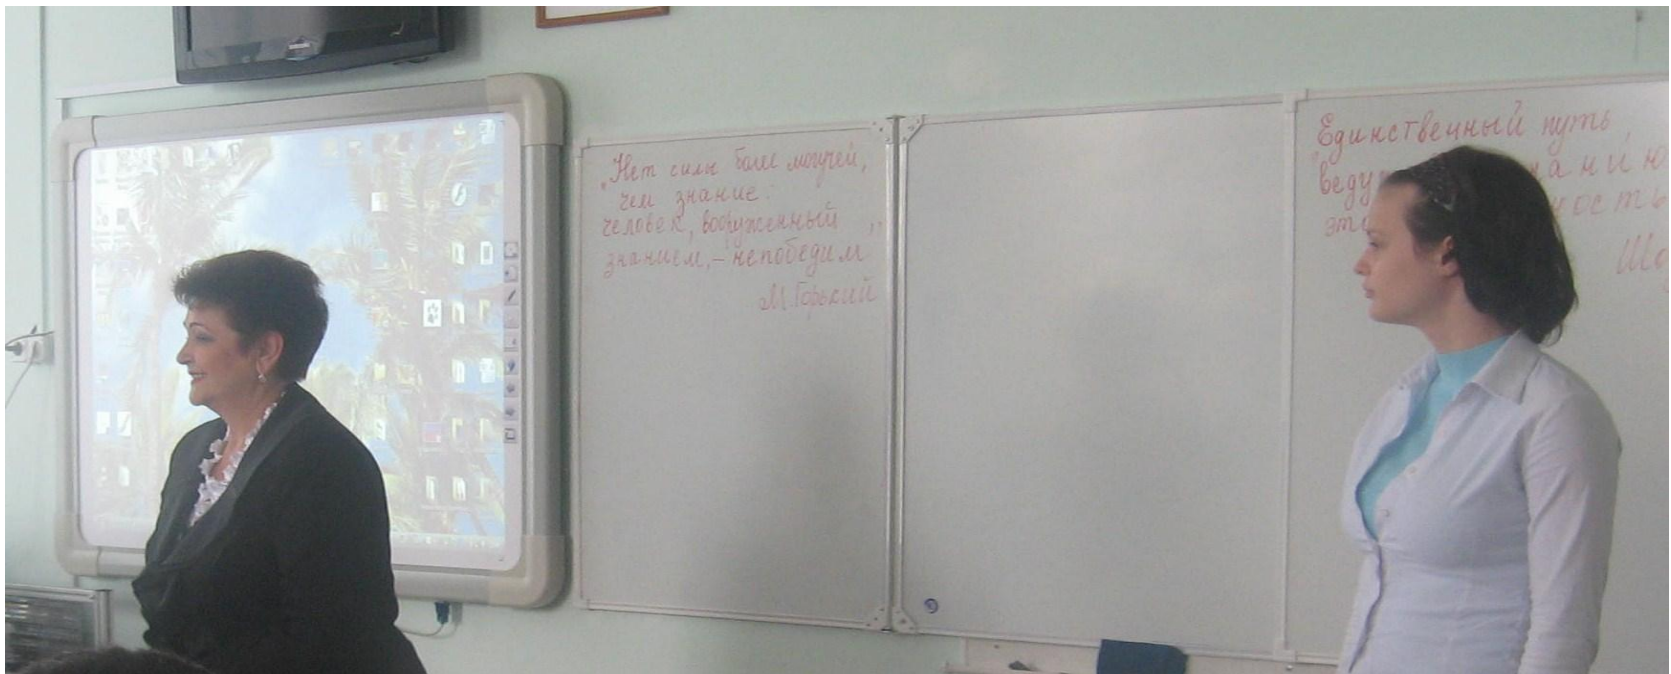 „Нет силы более могучей,
чем знание:
человек, вооруженный
знанием, – непобедим"
М. Горький
Единственный путь,
веду нию
эт ность
Шо